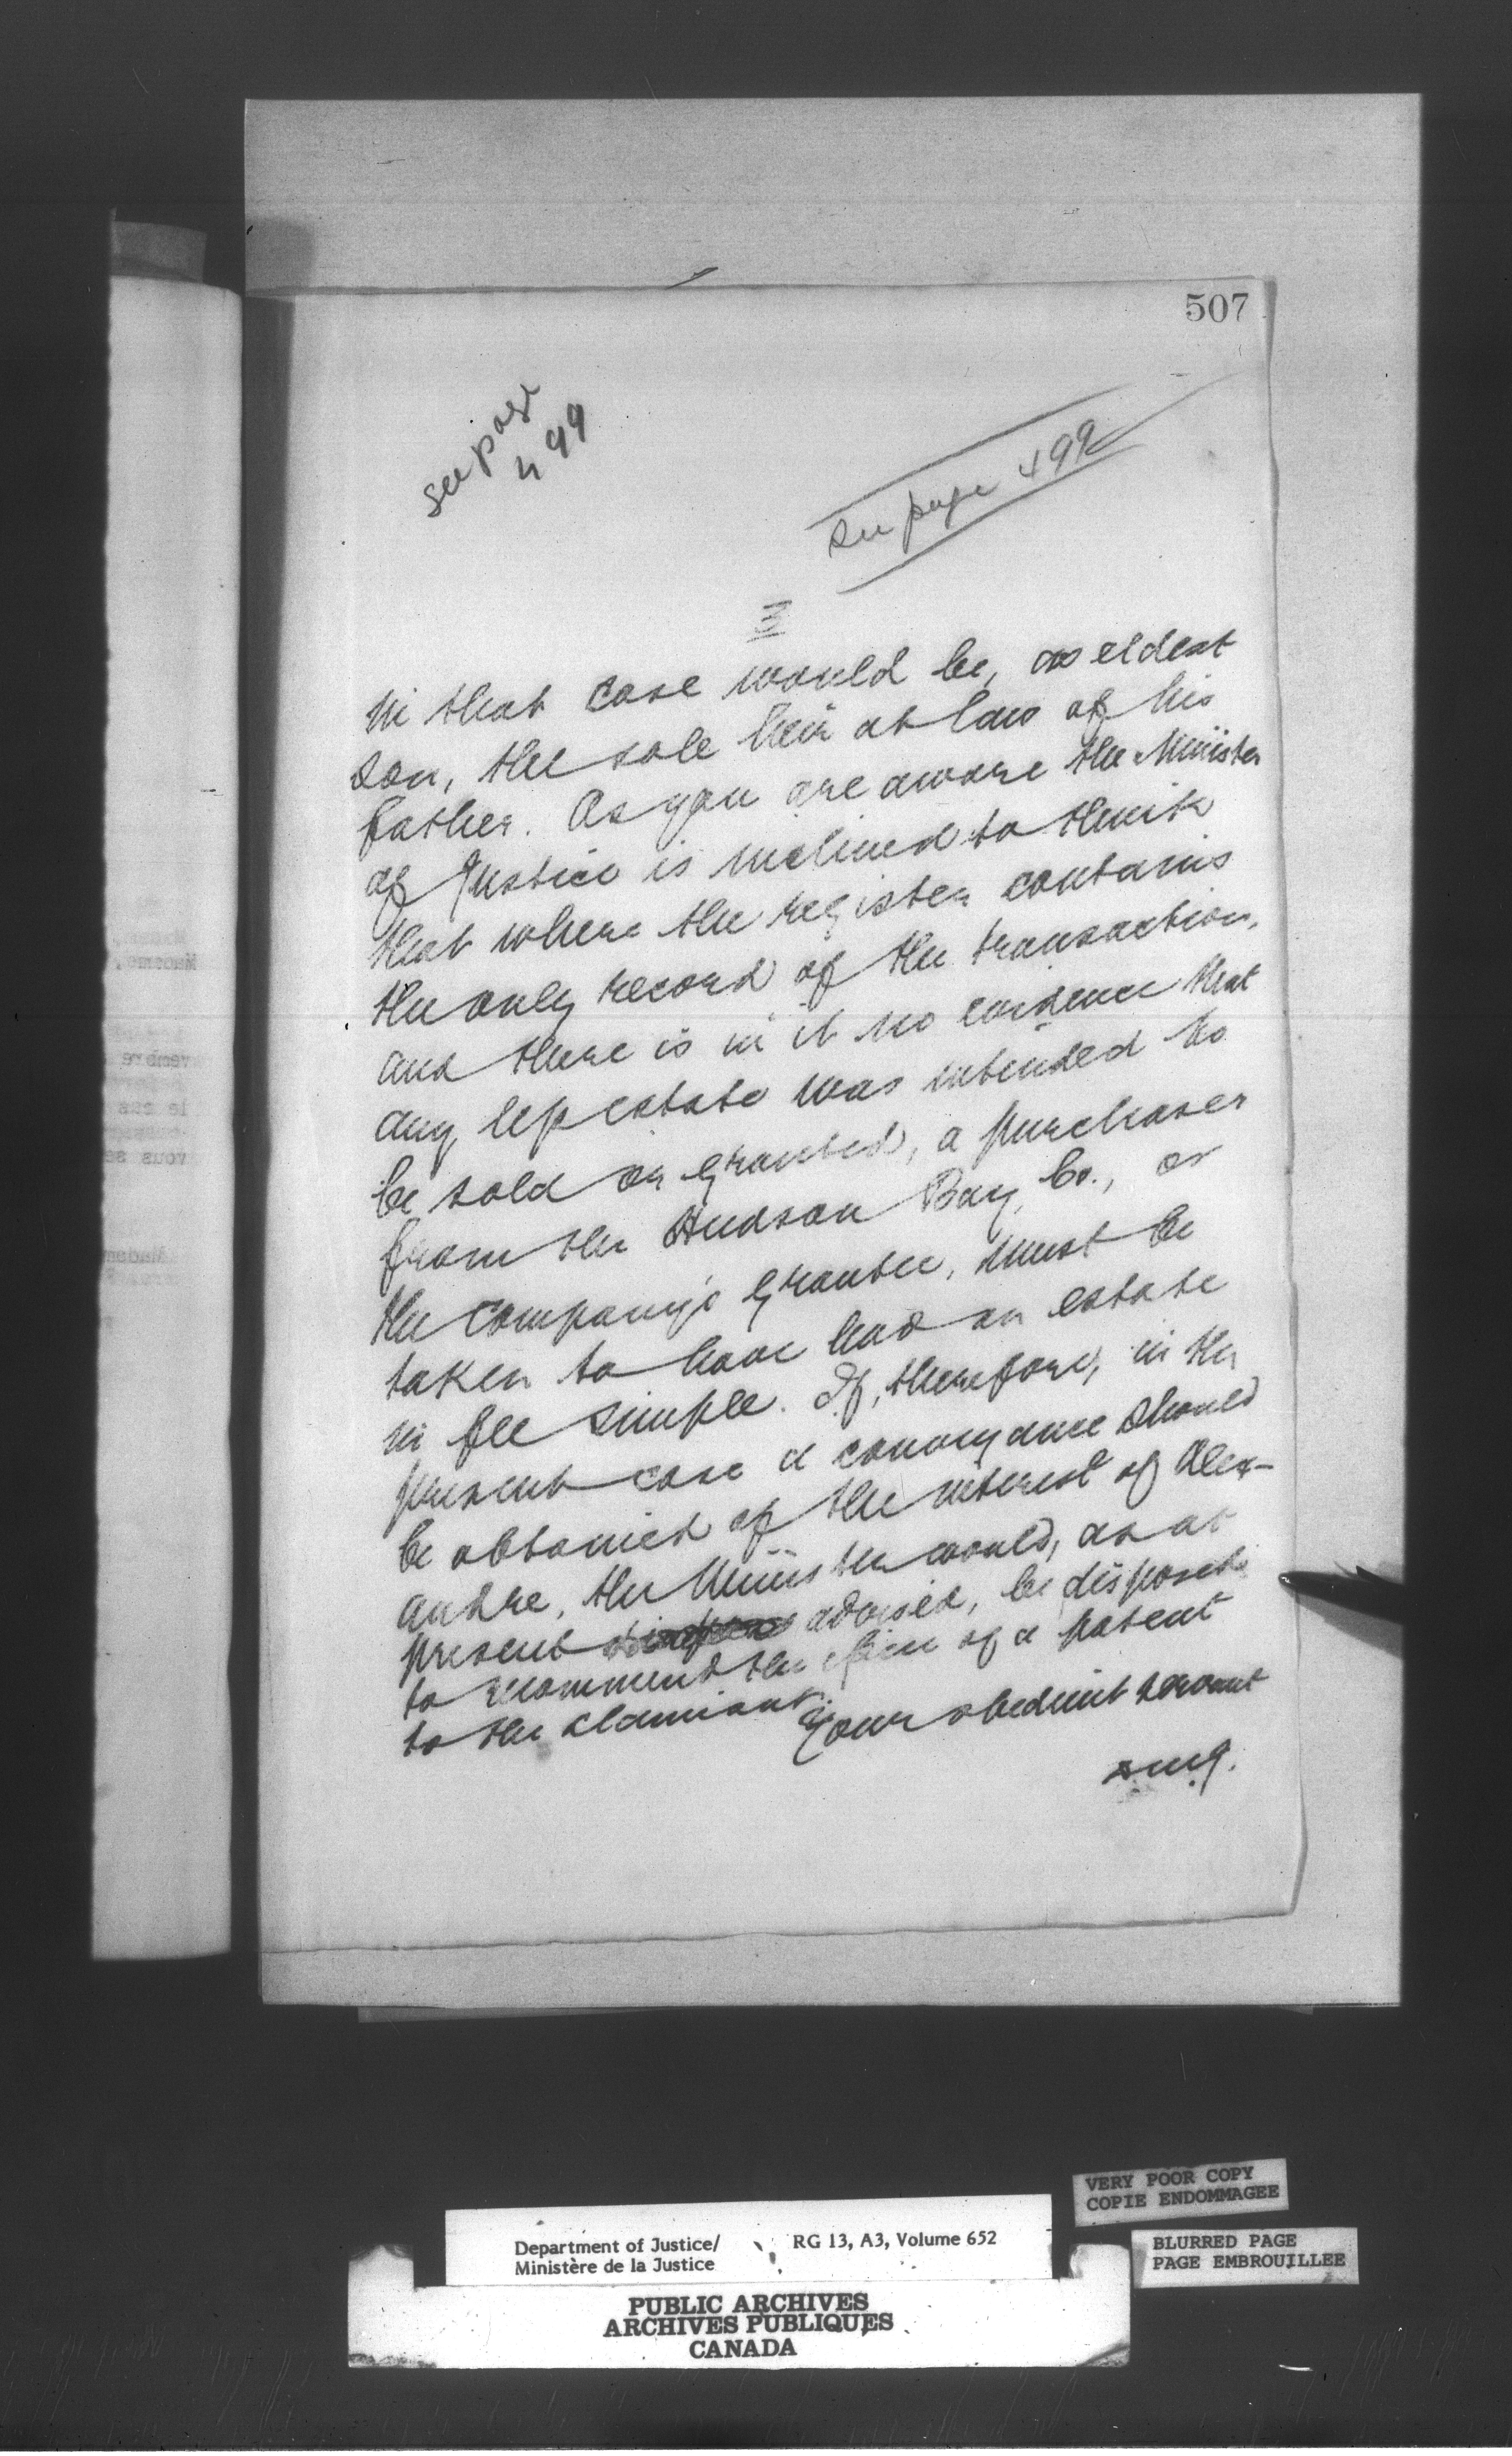 507
see page
499
See page 492
3
in that case would be, as eldest
son, the sole heir at law of his
father. As you are aware the Minister
of Justice is inclined to think
that where the register contains
the only record of the transaction,
and there is in it no evidence that
any less estate was intended to
be sold or granted, a purchaser
from the Hudson Bay Co., or
the Company's grantee, must be
taken to have had an estate
in fee simple. If, therefore, in the
present case a conveyance should
be obtained of the interest of Alex-
andre, the Minister would, as at
present advised, be disposed
to recommend the issue of a patent
to the claimant.
Your obedient servant
VERY POOR COPY
COPIE ENDOMMAGEE
BLURRED PAGE
PAGE EMBROUILLEE
Department of Justice/
Ministère de la Justice
RG 13, A3, Volume 652
PUBLIC ARCHIVES
ARCHIVES PUBLIQUES
CANADA